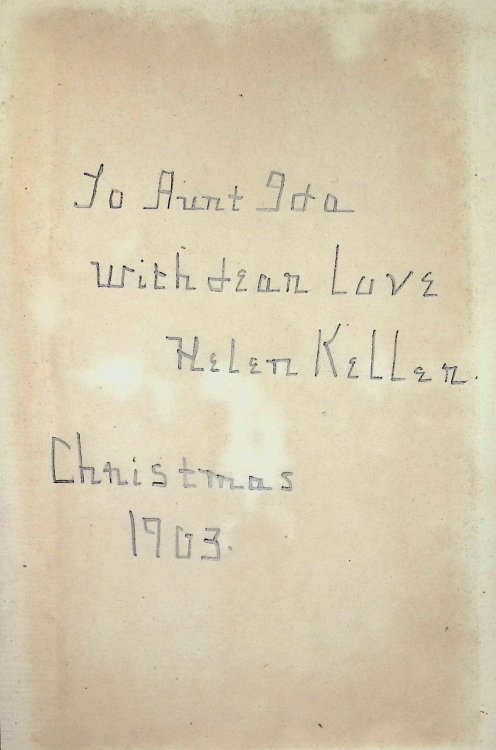 To Aunt Ida
with dear Love
Helen Keller.
Christmas
1903.